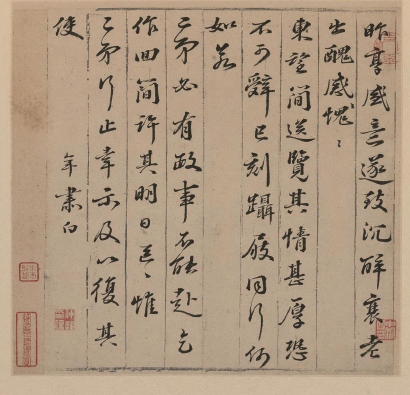 昨享盛意遂致沉醉衰老
出醜感愧〻
東望簡送覽其情甚厚恐
不可辭已刻躡屐同行何
如若
二弟必有政事不能赴乞
作回簡許其明日惟
二弟行止幸示及以復其
使
年肅白